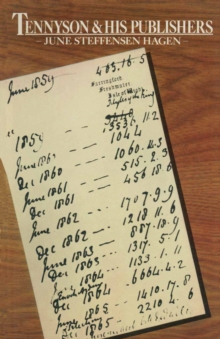 TENNYSON & HIS PUBLISHERS
- JUNE STEFFENSEN HAGEN -
June 1859 403.16.5
Farringford
Freshwater
Isle of Wight
Idylls of the King
1859
June 1860 1044
Dec 1860 1060.4.5
June 1861 515.2.9
Dec 1861 456.18.6
June 1862 1707.9.9
Dec 1862 1218.11.6
June 1863 887.18.9
Dec 1863 1317.5.1
June 1864 1133.1.11
Dec 1864 6664.4.2
June 1865 1410.17.8
Dec 1865 2210.4.6